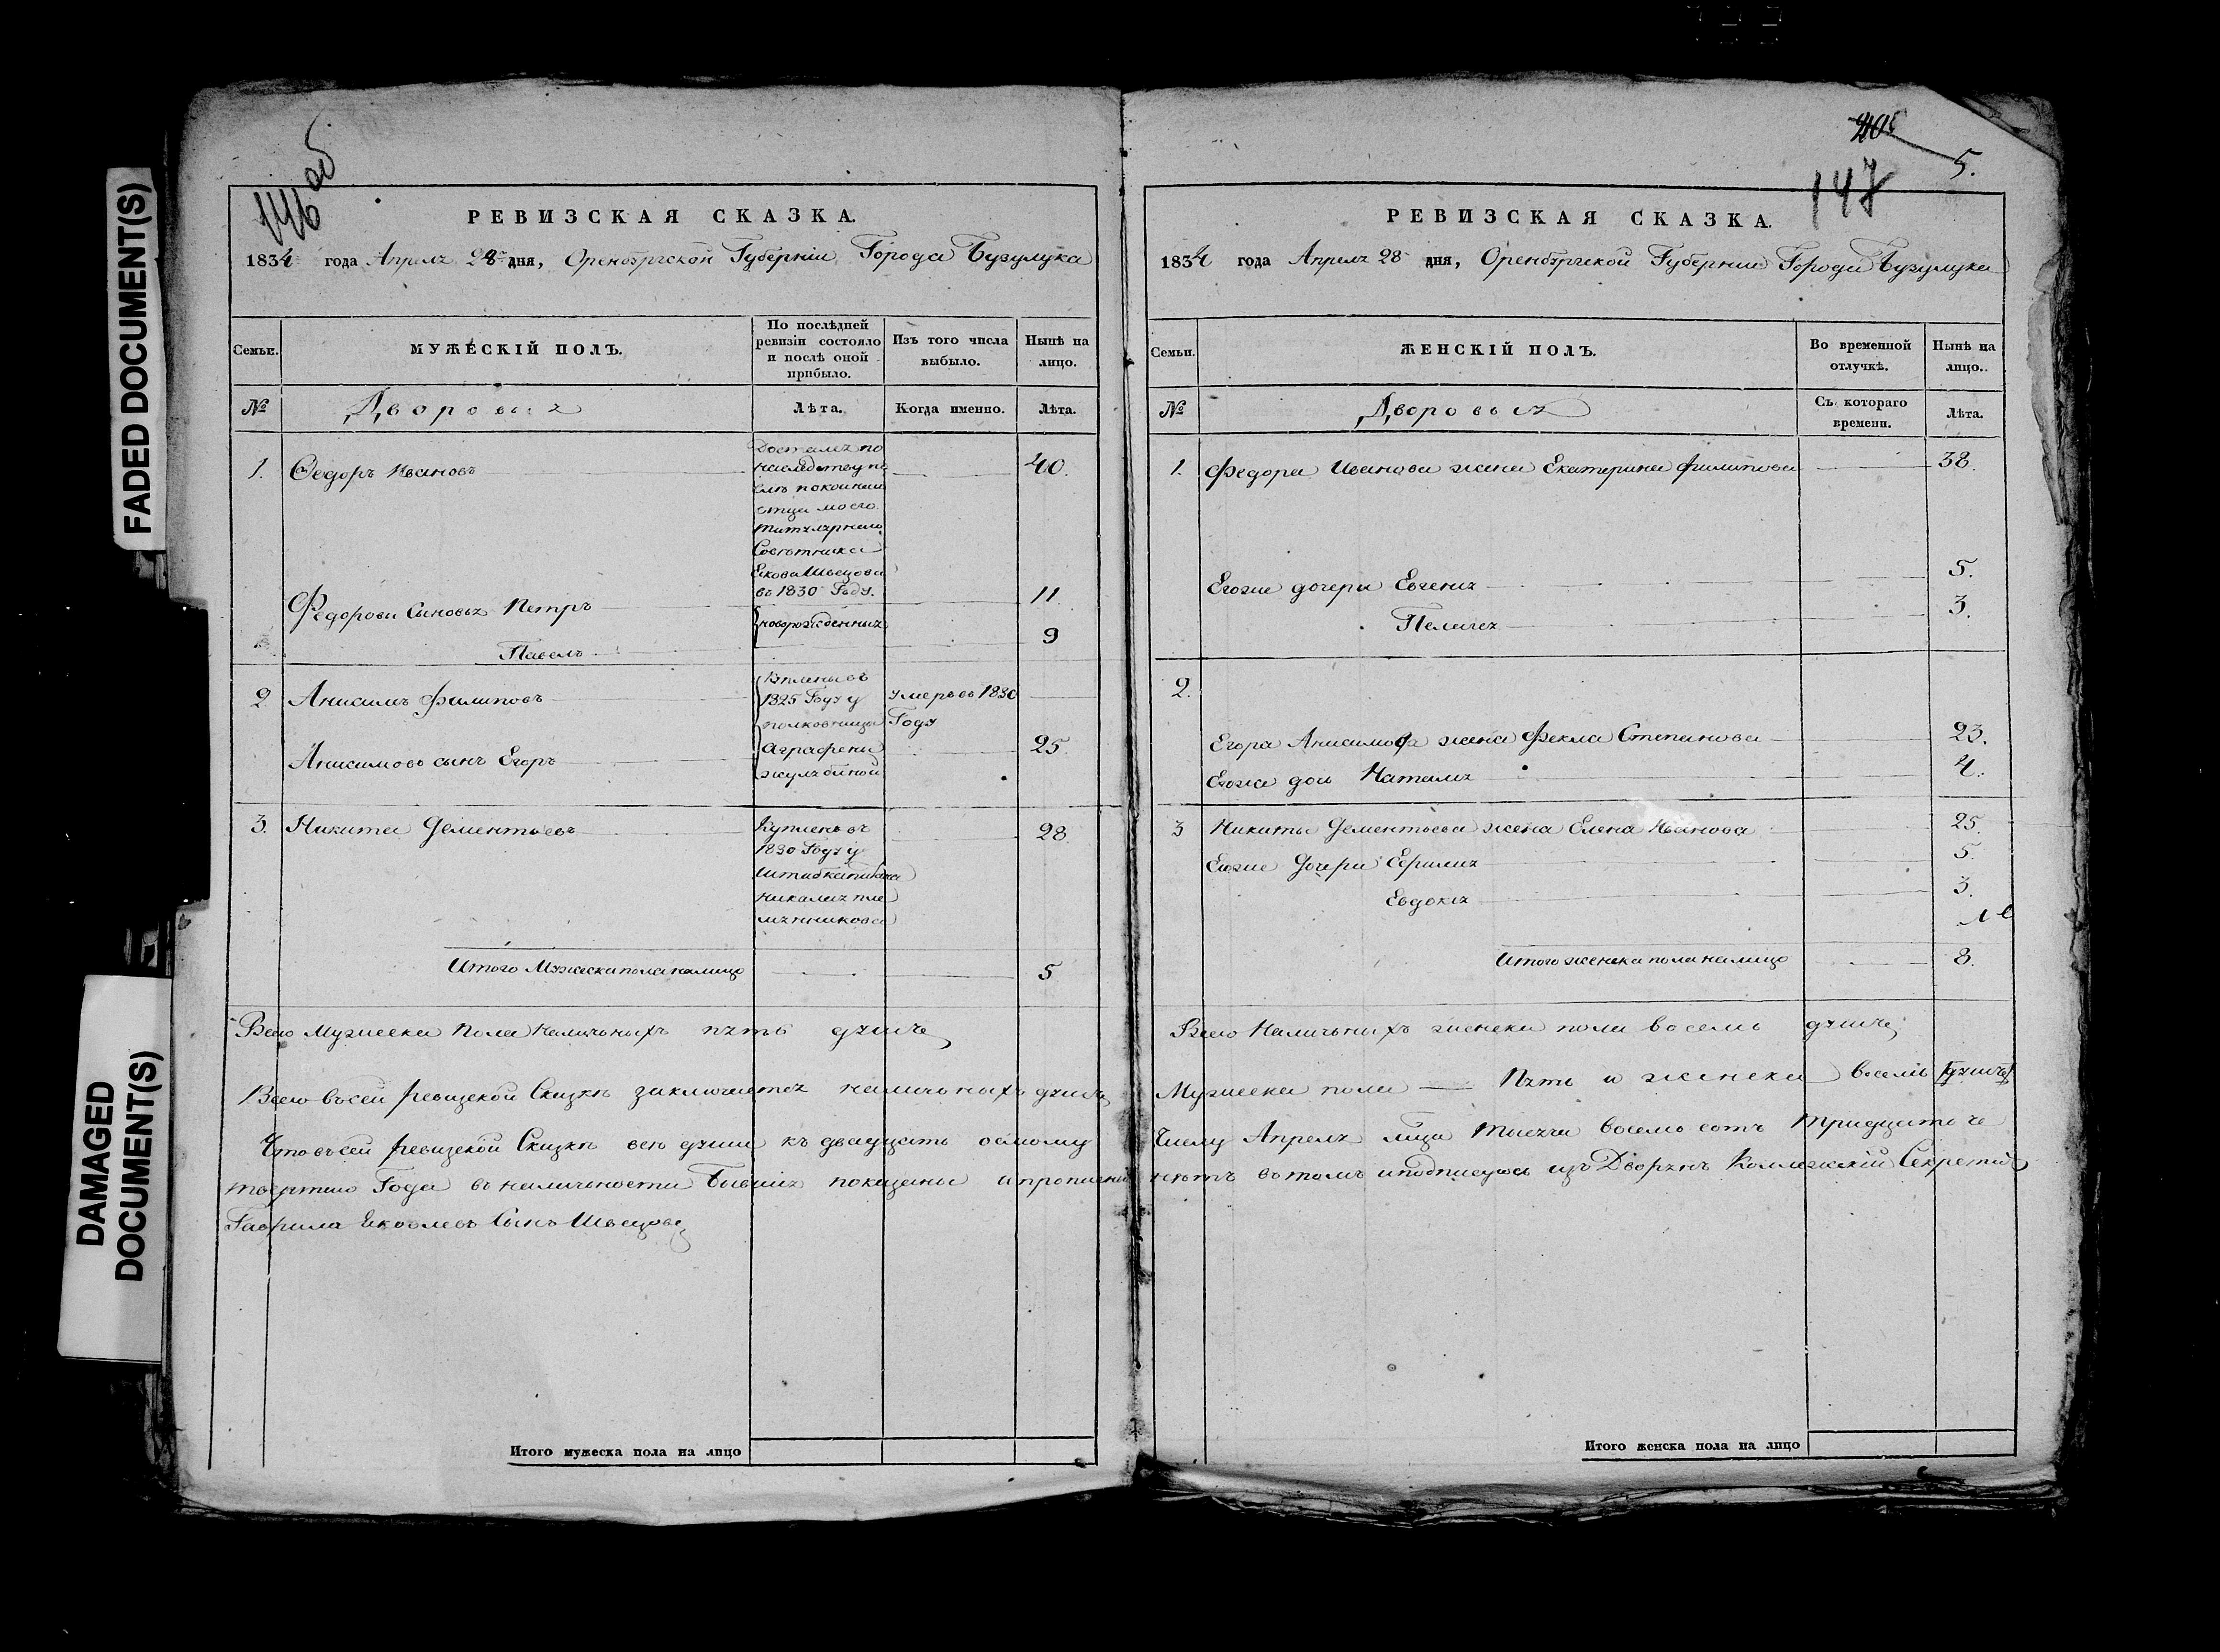 FADED DOCUMENT(S)
DAMAGED
DOCUMENT(S)
146 об
РЕВИЗСКАЯ СКАЗКА.
1834 года Апреля 28 дня, Оренбургской Губернiи Города Бузулука
Семьи.
МУЖЕСКIЙ ПОЛЪ.
По послѣдней
ревизiи состояло
и послѣ оной
прибыло.
Изъ того числа
выбыло.
Нынѣ на
лицо.
№
Дворовыя
Лѣта.
Когда именно.
Лѣта.
1. Федоръ Ивановъ 40.
Достался по
наследству по
покойнаго
отца моего
титулярнаго
Советника
Якова Швецова
въ 1830 Году.
Федоровы Сыновья Петръ 11
новорожденныя
Павелъ 9
2 Анисимъ Филиповъ
1825 Году у
умеръ въ 1830
Году
Аграфены
Анисимовъ сынъ Егоръ 25.
3. Никита Дементьевъ 28
Купленъ въ
1830 Году у
Итого Мужеска пола налицо 5
Всего Мужеска Пола Наличныхъ пять душъ
Всего въ сей ревизской Сказке заключается наличныхъ душъ
Что въ сей ревизской Сказке все души къ двадцать осьмому
твертаго Года въ наличности бывшия показаны и прописаны
Гаврила Яковлевъ Сынъ Швецовъ
Итого мужеска пола на лицо
5.
147
РЕВИЗСКАЯ СКАЗКА.
1834 года Апреля 28 дня, Оренбургской Губернии Города Бузулука
Семьи.
ЖЕНСКIЙ ПОЛЪ.
Во временной
отлучкѣ.
Нынѣ на
лицо.
№
Дворовыя
Съ котораго
времени.
Лѣта.
1. Федора Иванова жена Екатерина Филипова 38.
Егоже дочери Евгения 5.
Пелагея 3.
2.
Егора Анисимова жена Фекла Степанова 23.
Егоже дочь Наталья 4.
3 Никиты Дементьева жена Елена Иванова 25.
Егоже Дочери 5.
Евдокия 3.
Итого женска пола налицо 8.
Всего Наличныхъ женска пола восемь душъ
Мужеска пола — Пять и женска восемь душъ
Числу Апреля мца тысяча восемь сотъ тридцать че
нетъ въ томъ и подписуюсь изъ Дворянъ Коллежский Секретарь
Итого женска пола на лицо